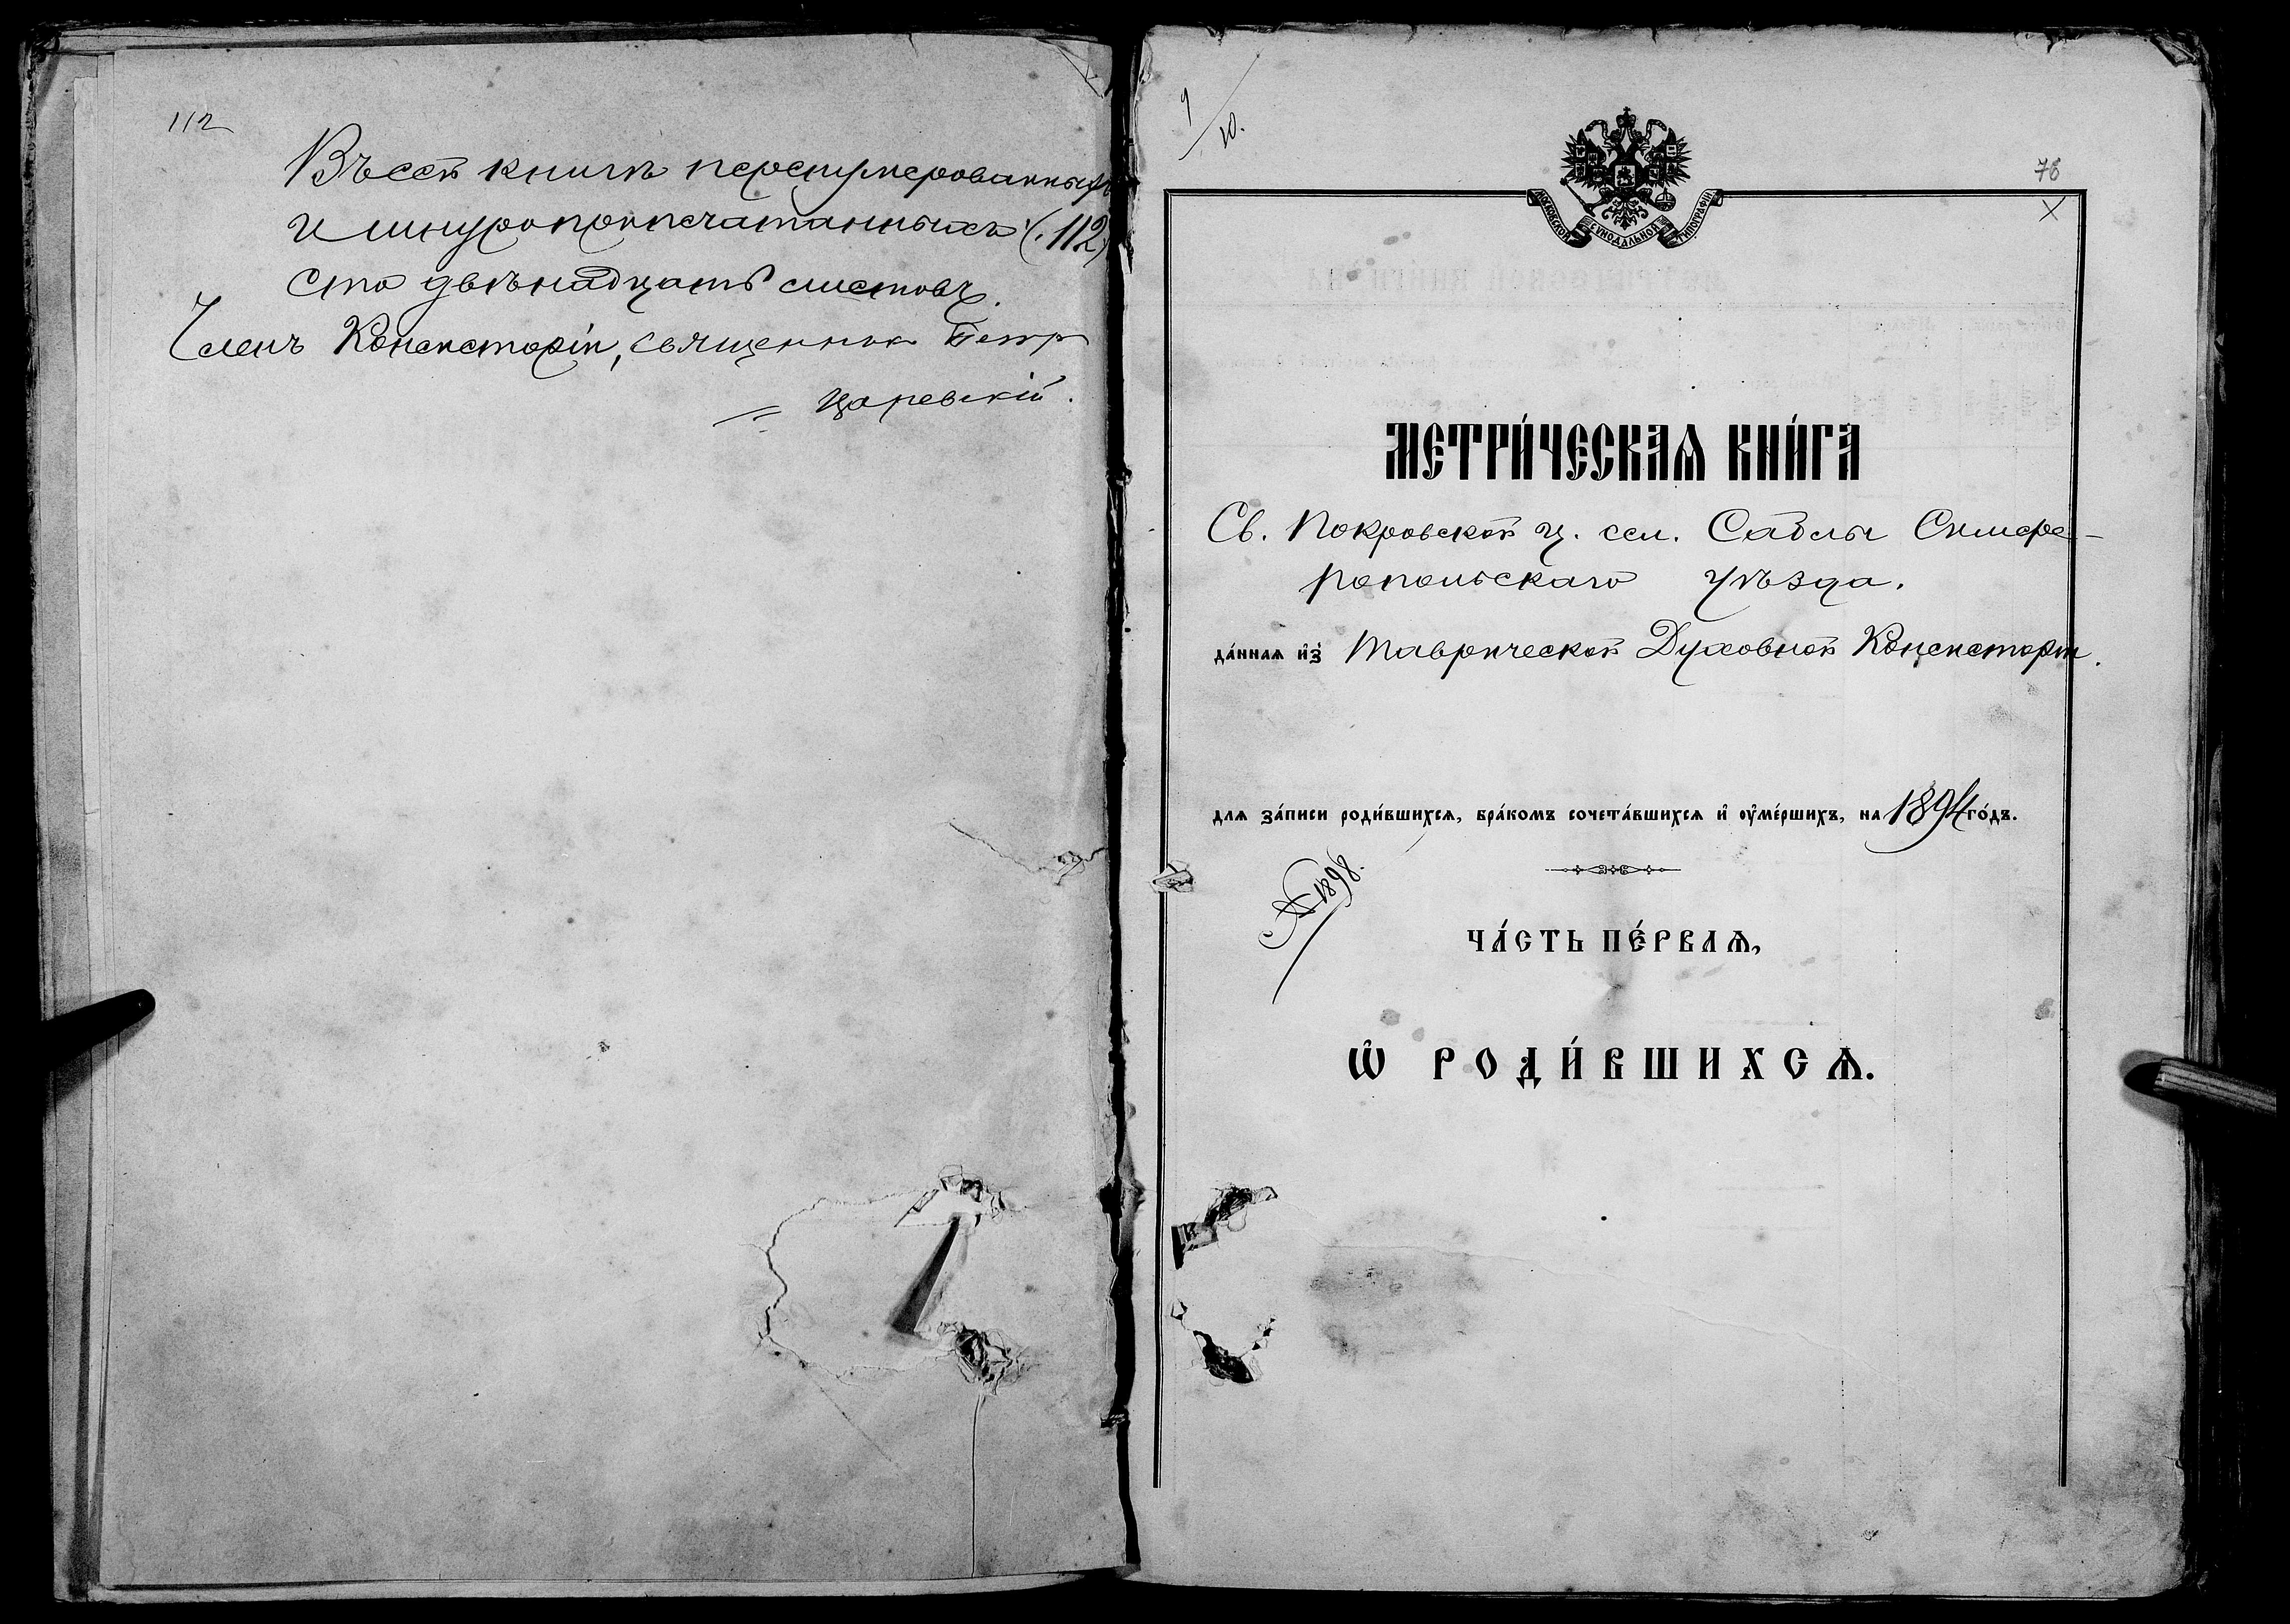 112
Въ сей книгѣ перенумерованныхъ
и шнуропропечатанныхъ (112)
сто двѣнадцать листовъ.
Членъ Консисторіи, священник Петр
Царевскій.
9/10.
78
МОСКОВСКОЙ СѴНОДАЛЬНОЙ ТИПОГРАФІИ
X
МЕТРИ́ЧЕСКАѦ КНИ́ГА
Св. Покровской ц. сел. Саблы Симфе-
ропольскаго уѣзда.
да́ннаѧ и҆з̾ Таврической Духовной Консисторіи.
длѧ за́писи роди́вшихсѧ, бра́комъ сочета́вшихсѧ и҆ ᲂу҆ме́ршихъ, на 1894 го́дъ.
№ 1898.
ЧА́СТЬ ПЕ́РВАѦ,
Ѽ РОДИ́ВШИХСѦ.